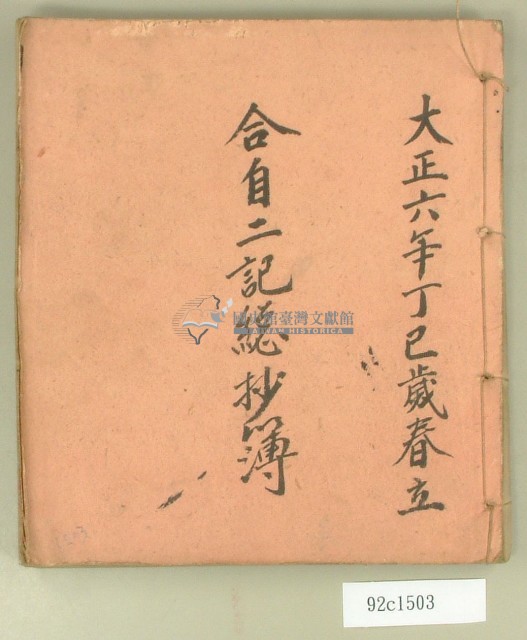 大正六年丁巳歲春立
合自二記總抄簿
國史館臺灣文獻館
TAIWAN HISTORICA
92c1503